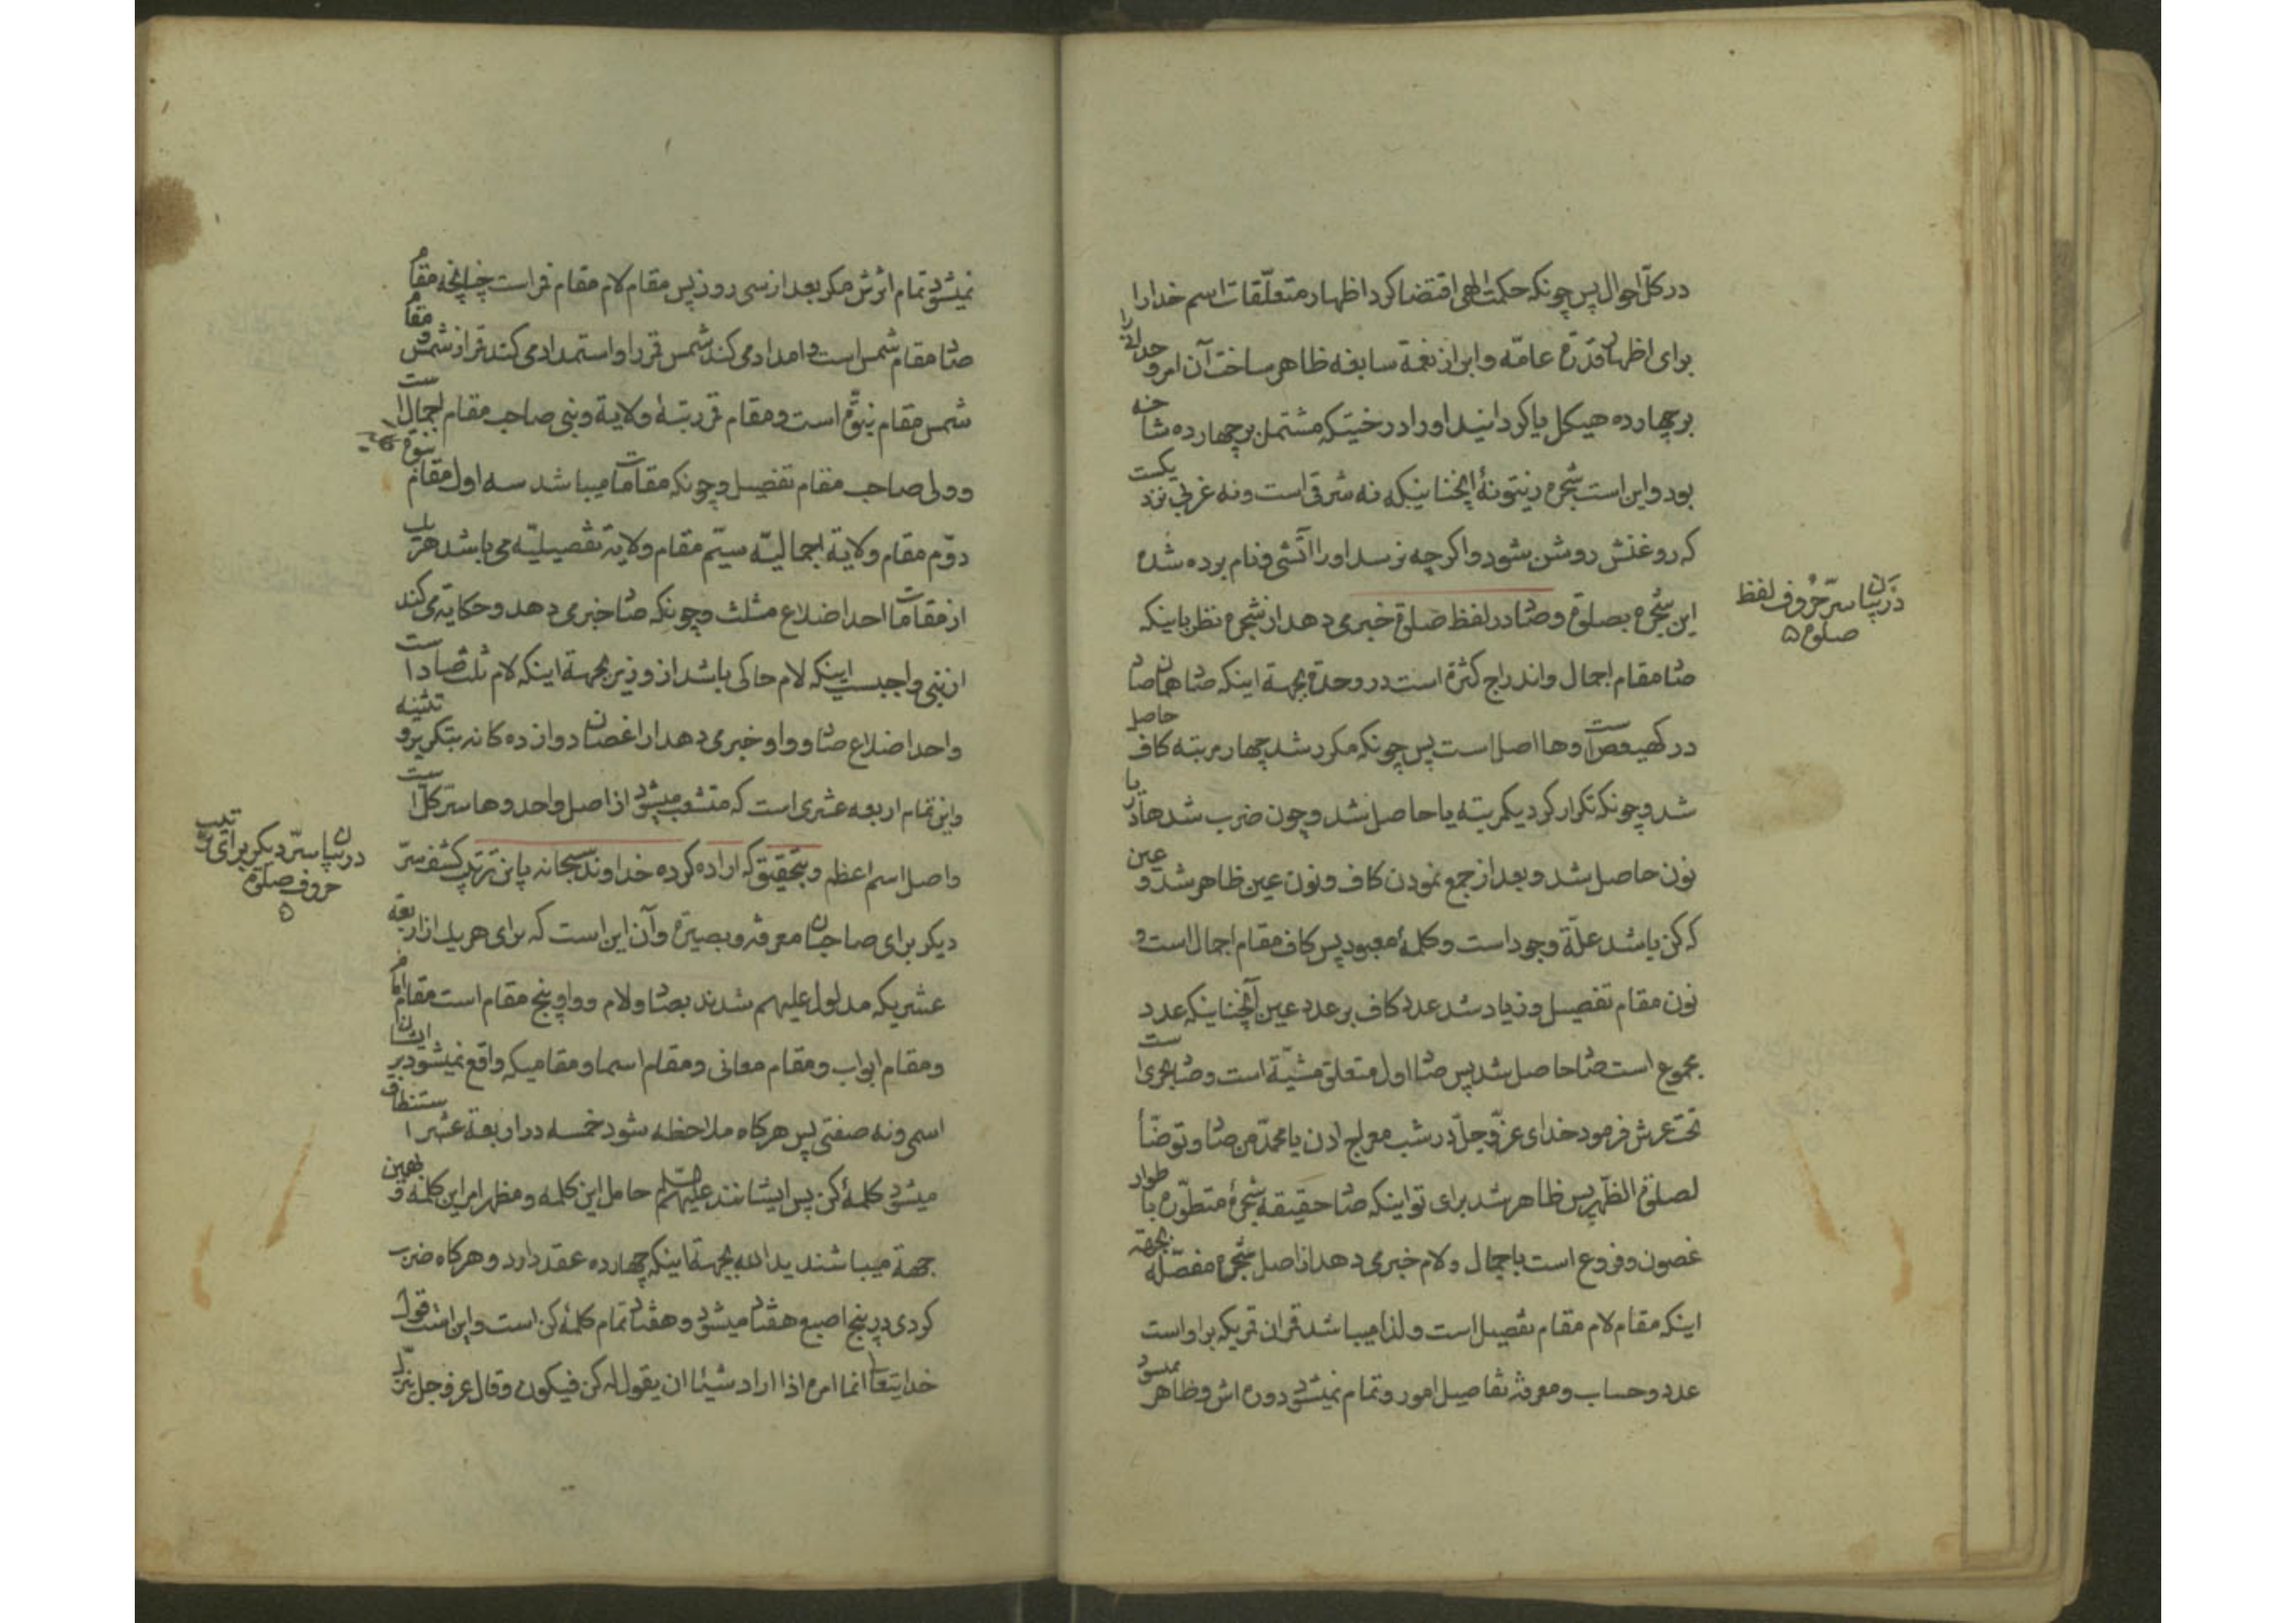 در کلّ احوال پس چونکه حکمت الهی اقتضا کرد اظهار متعلّقات اسم خدا را
برای اظهار قدرة عامّه و ابراز نعمة سابغه ظاهر ساخت آن امر وحدانی را
بر چهارده هیکل یا کردانید او را درختیکه مشتمل بر چهارده شاخه
بود و این است شجره زیتونهٔ آنچنانیکه نه شرقی است و نه غربی نزدیکست
که روغنش روشن شود و اکرچه نرسد او را آتشی و نام برده شده
این شجره بصلوة و صاد در لفظ صلوة خبر می دهد از شجره نظر باینکه
صاد مقام اجمال و اندراج کثرة است در وحدة بجهة اینکه صاد همان صاد
در کهیعص است و ها اصل است پس چونکه مکرر شد چهار مرتبه کاف حاصل
شد و چونکه تکرار کرد یکمرتبه یا حاصل شد و چون ضرب شد ها در یا
نون حاصل شد و بعد از جمع نمودن کاف و نون عین ظاهر شد و عین
که کن باشد علّة وجود است و کلمهٔ معبود پس کاف مقام اجمال است و
نون مقام تفصیل و زیاد شد عدد کاف بر عدد عین آنچنانیکه عدد
مجموع است صاد حاصل شد پس صاد اول متعلق مشیّة است و صاد بحری است
تحت عرش فرمود خدای عزّ و جلّ در شب معراج ادن یا محمّد من صاد و توضّأ
لصلوة الظهر پس ظاهر شد برای تو اینکه صاد حقیقه شجرهٔ متطوّره باطوار
غصون و فروع است باجمال و لام خبر می دهد از اصل شجره مفصّله بجهة
اینکه مقام لام مقام تفصیل است و لذا میباشد قران قمریکه بر او است
عدد و حساب و معرفة تفاصیل امور و تمام نمیشود دوره اش و ظاهر نمیشود
در بیان سرّ حروف لفظ
صلوة ۵
نمیشود تمام اثرش مکر بعد از سی روز پس مقام لام مقام قمر است چنانچه مقام
صاد مقام شمس است و امداد می کند شمس قمر را و استمداد می کند قمر از شمس و مقام
شمس مقام نبوّة است و مقام قمر رتبهٔ ولایة و نبی صاحب مقام اجمال است
و ولی صاحب مقام تفصیل و چونکه مقامات میباشد سه اول مقام نبوة
دوّم مقام ولایة اجمالیّه سیّم مقام ولایة تفصیلیّه می باشد هر یک
از مقامات احد اضلاع مثلث و چونکه صاد خبر می دهد و حکایة می کند
از نبی واجبست اینکه لام حاکی باشد از وزیر بجهة اینکه لام ثلث صاد است
و احد اضلاع صاد و واو خبر می دهد از اغصان دوازده کانه بتکریر و تثنیه
و این تمام اربعه عشری است که متشعب میشود از اصل واحد و ها سرّ کلّ است
و اصل اسم اعظم و بتحقیق که اراده کرده خداوند سبحانه باین ترتیب کشف سرّ
دیکر برای صاحبان معرفة و بصیرة و آن این است که برای هر یک از اربعة
عشریکه مدلول علیهم شدند بصاد و لام و واو پنج مقام است مقام امام
و مقام ابواب و مقام معانی و مقام اسما و مقامیکه واقع نمیشود بر ایشان
اسمی و نه صفتی پس هرکاه ملاحظه شود خمسه در اربعة عشر استنطاق
میشود کلمهٔ کن پس ایشانند علیهم السّلم حامل این کلمه و مظهر امر این کلمه و بهمین
جهة میباشند ید الله بجهة اینکه چهارده عقد دارد و هرکاه ضرب
کردی در پنج اصبع هفتاد میشود و هفتاد تمام کلمهٔ کن است و این است قول
خدایتعالی انما امره اذا اراد شیئا ان یقول له کن فیکون و قال عز و جل
در بیان سرّ دیکر برای ترتیب
حروف صلوة
۵